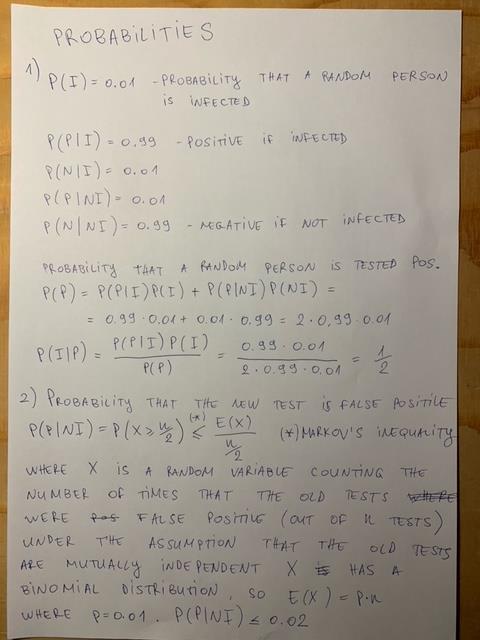 PROBABILITIES
1) P(I) = 0.01 - PROBABILITY THAT A RANDOM PERSON
IS INFECTED
P(P|I) = 0.99 - POSITIVE IF INFECTED
P(N|I) = 0.01
P(P|NI) = 0.01
P(N|NI) = 0.99 - NEGATIVE IF NOT INFECTED
PROBABILITY THAT A RANDOM PERSON IS TESTED POS.
P(P) = P(P|I)P(I) + P(P|NI)P(NI) =
= 0.99 · 0.01 + 0.01 · 0.99 = 2 · 0,99 · 0.01
P(I|P) = P(P|I)P(I) / P(P) = 0.99 · 0.01 / 2 · 0.99 · 0.01 = 1/2
2) PROBABILITY THAT THE NEW TEST IS FALSE POSITILE
P(P|NI) = P(X ≥ n/2) (*) ≤ E(X) / n/2 (*) MARKOV'S INEQUALITY
WHERE X IS A RANDOM VARIABLE COUNTING THE
NUMBER OF TIMES THAT THE OLD TESTS WHERE
WERE POS FALSE POSITIVE (OUT OF n TESTS)
UNDER THE ASSUMPTION THAT THE OLD TESTS
ARE MUTUALLY INDEPENDENT X IS HAS A
BINOMIAL DISTRIBUTION, SO E(X) = P·n
WHERE P=0.01. P(P|NI) ≤ 0.02